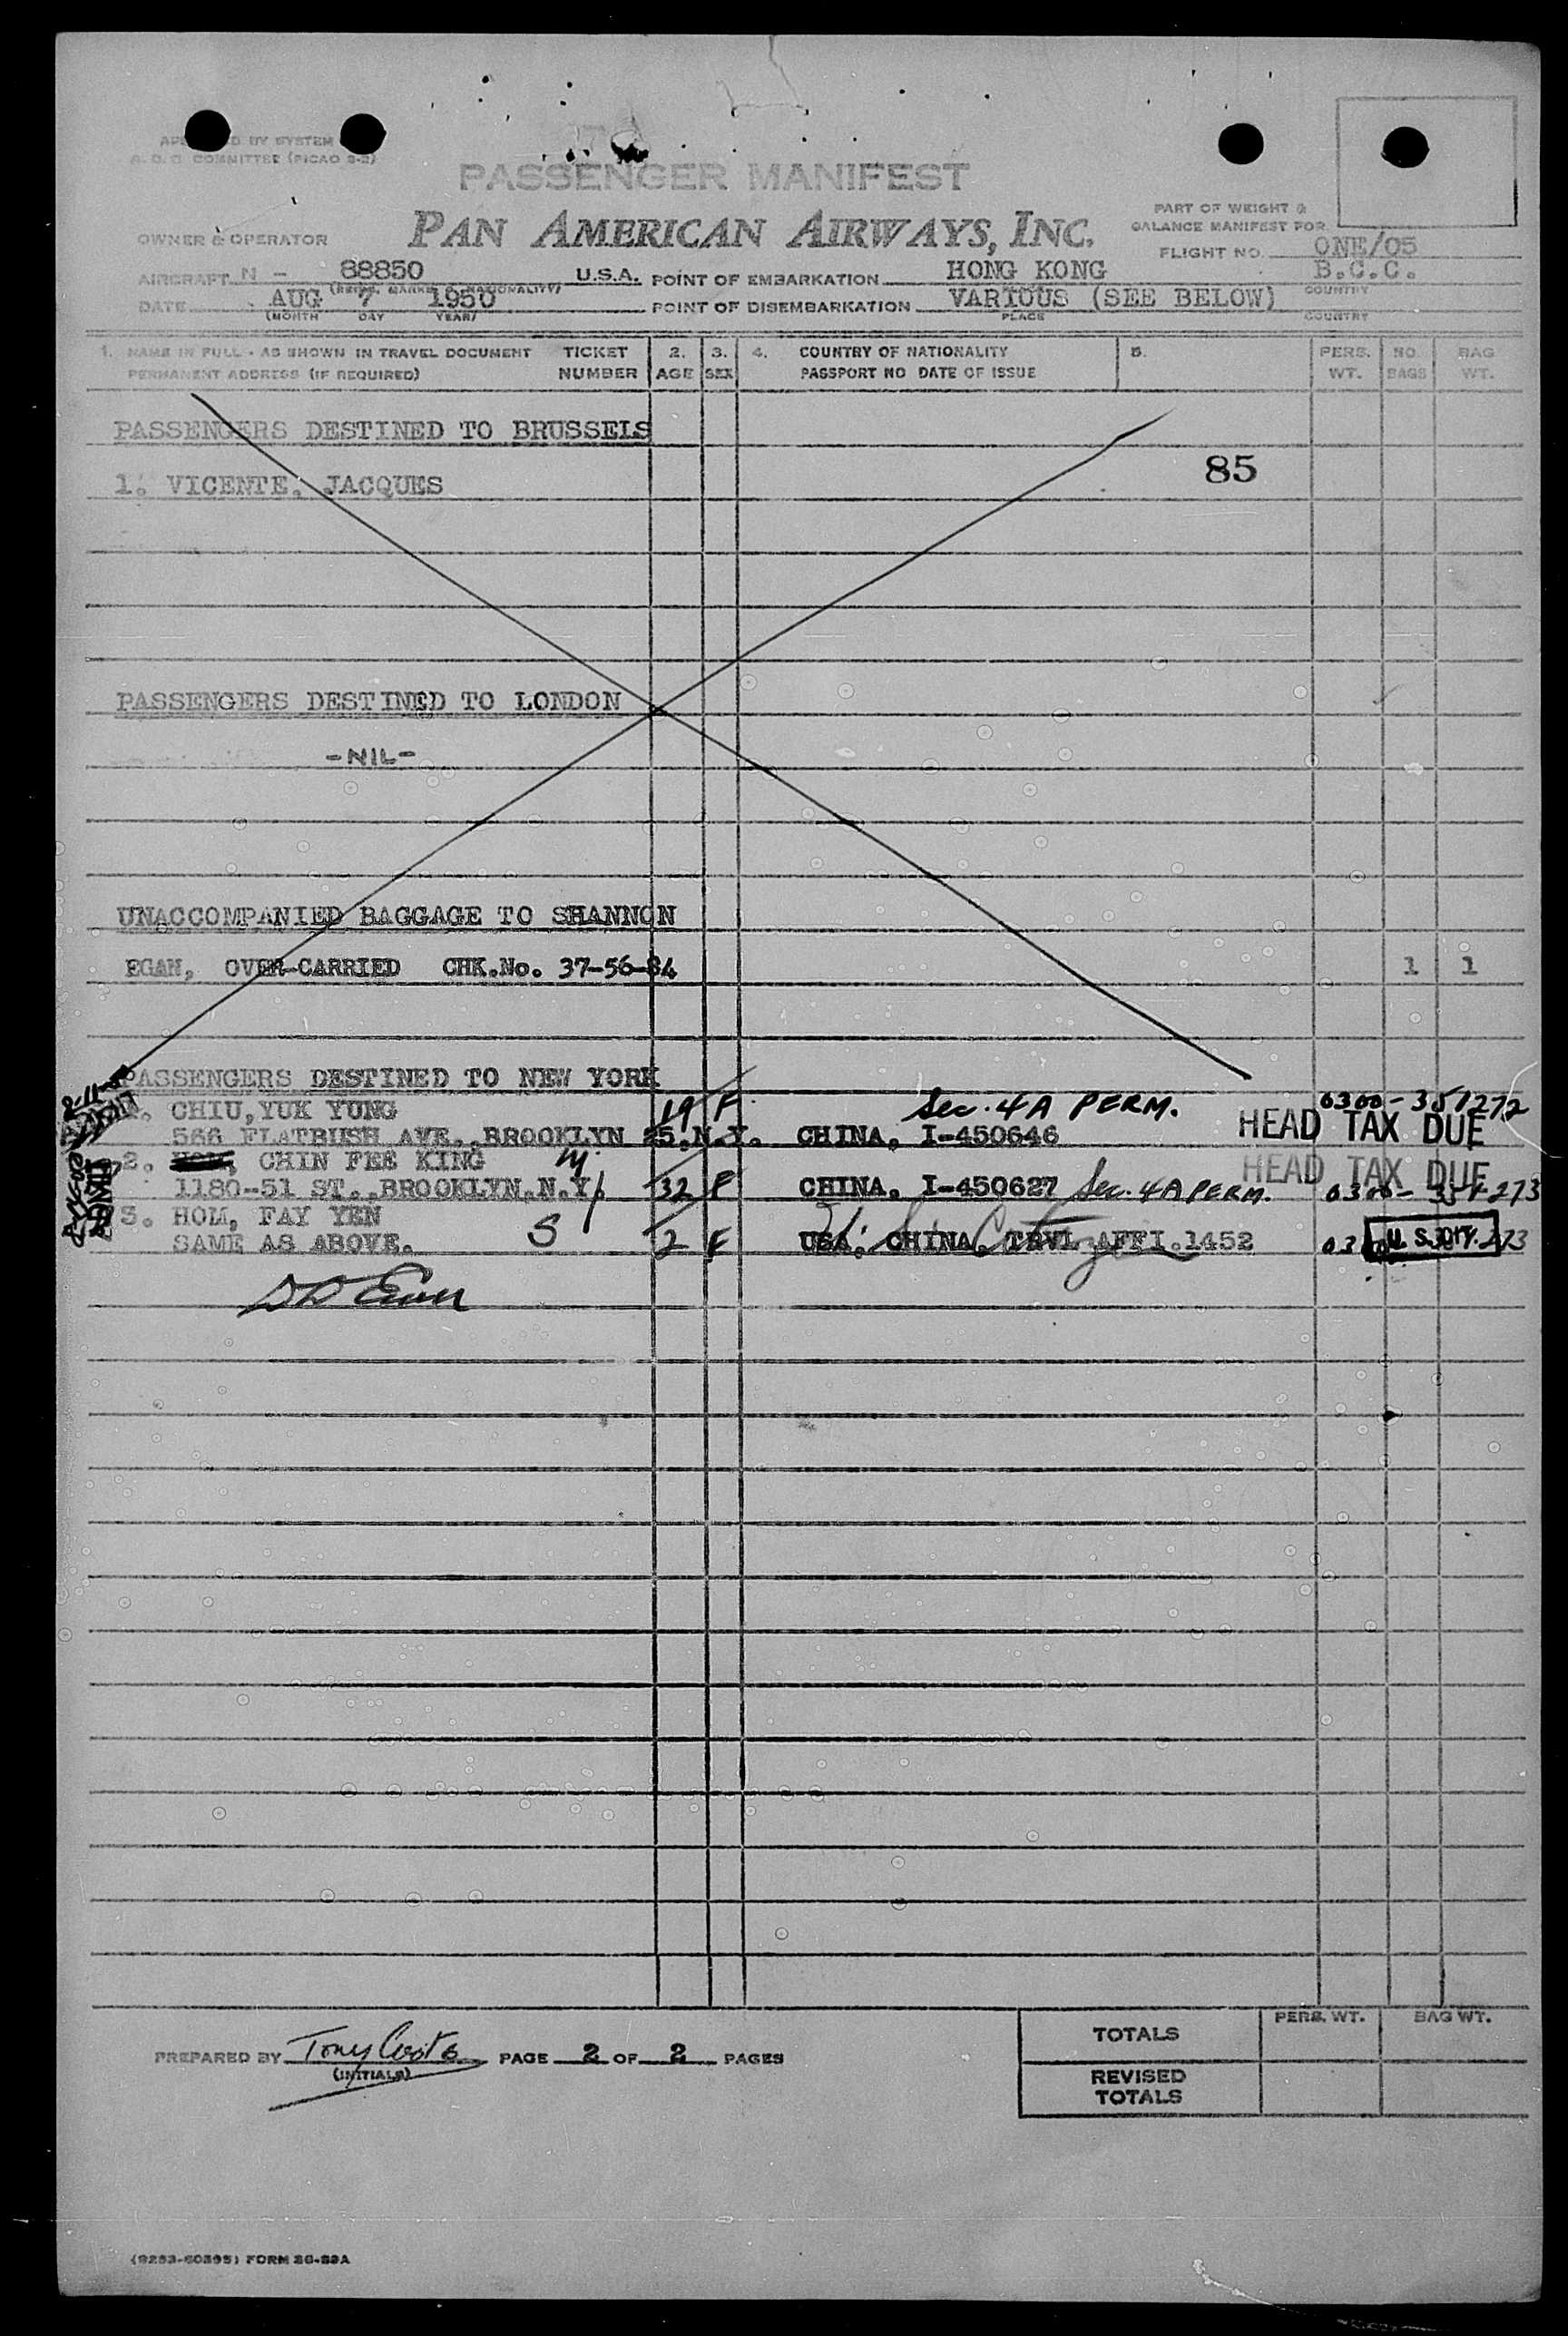 BY SYSTEM
COMMITTEE (PICAO 2-2)
PASSENGER MANIFEST
PAN AMERICAN AIRWAYS, INC.
PART OF WEIGHT &
BALANCE MANIFEST FOR
OWNER & OPERATOR
FLIGHT NO. ONE/05
AIRCRAFT N - 88850 U.S.A. POINT OF EMBARKATION HONG KONG B.C.C.
COUNTRY
DATE AUG 7 1950 POINT OF DISEMBARKATION VARIOUS (SEE BELOW)
(MONTH DAY YEAR) PLACE COUNTRY
1. NAME IN FULL - AS SHOWN IN TRAVEL DOCUMENT TICKET 2. 3. 4. COUNTRY OF NATIONALITY 5. PERS. NO. BAG
PERMANENT ADDRESS (IF REQUIRED) NUMBER AGE SEX PASSPORT NO DATE OF ISSUE WT. BAGS WT.
PASSENGERS DESTINED TO BRUSSELS
85
1. VICENTE, JACQUES
PASSENGERS DESTINED TO LONDON
-NIL-
UNACCOMPANIED BAGGAGE TO SHANNON
EGAN, OVER-CARRIED CHK.No. 37-56-84 1 1
PASSENGERS DESTINED TO NEW YORK
1. CHIU,YUK YUNG 19 F Sec. 4A PERM. 0300-351272
566 FLATBUSH AVE.,BROOKLYN 25,N.Y. CHINA, I-450646 HEAD TAX DUE
2. CHIN FEE KING M HEAD TAX DUE
1180-51 ST.,BROOKLYN,N.Y. 32 F CHINA, I-450627 Sec. 4A PERM. 0300-351273
3. HOM, FAY YEN S
SAME AS ABOVE. 2 F USA. CHINA, TRVL AFFI.1452 U. S.
PREPARED BY Tony PAGE 2 OF 2 PAGES
(INITIALS)
TOTALS PERS. WT. BAG WT.
REVISED
TOTALS
FORM